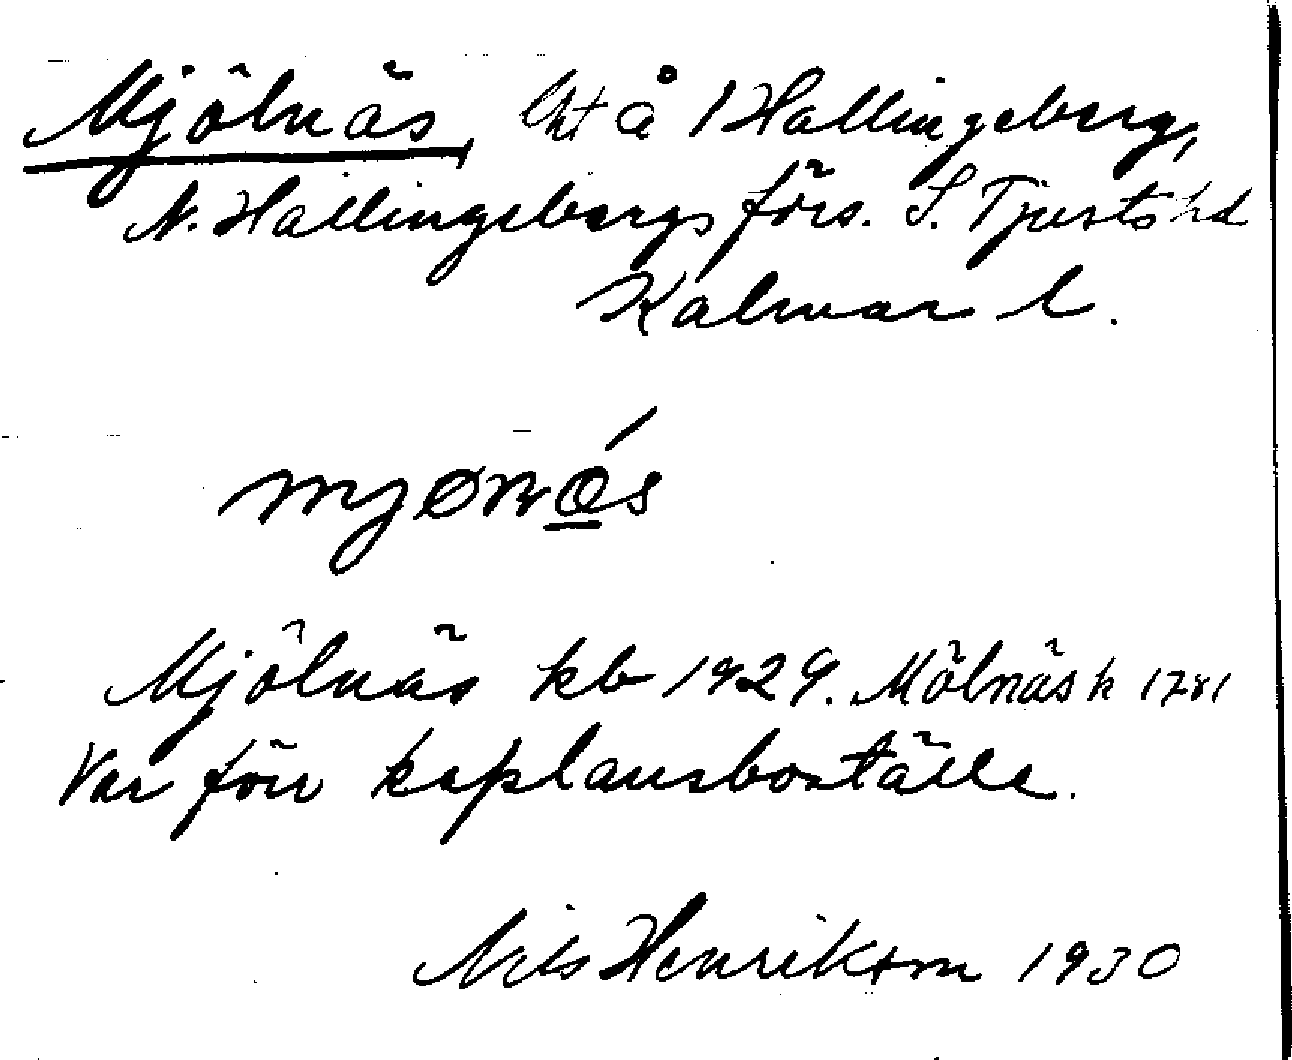 Mjölnäs, lht å 1 Hallingeberg,
N. Hallingebergs förs. S. Tjusts hd
Kalmar l.
mjønǫ́s
Mjölnäs kb 1929. Mölnäs k 1781
Var förr kaplansboställe.
Nils Henrikson 1930